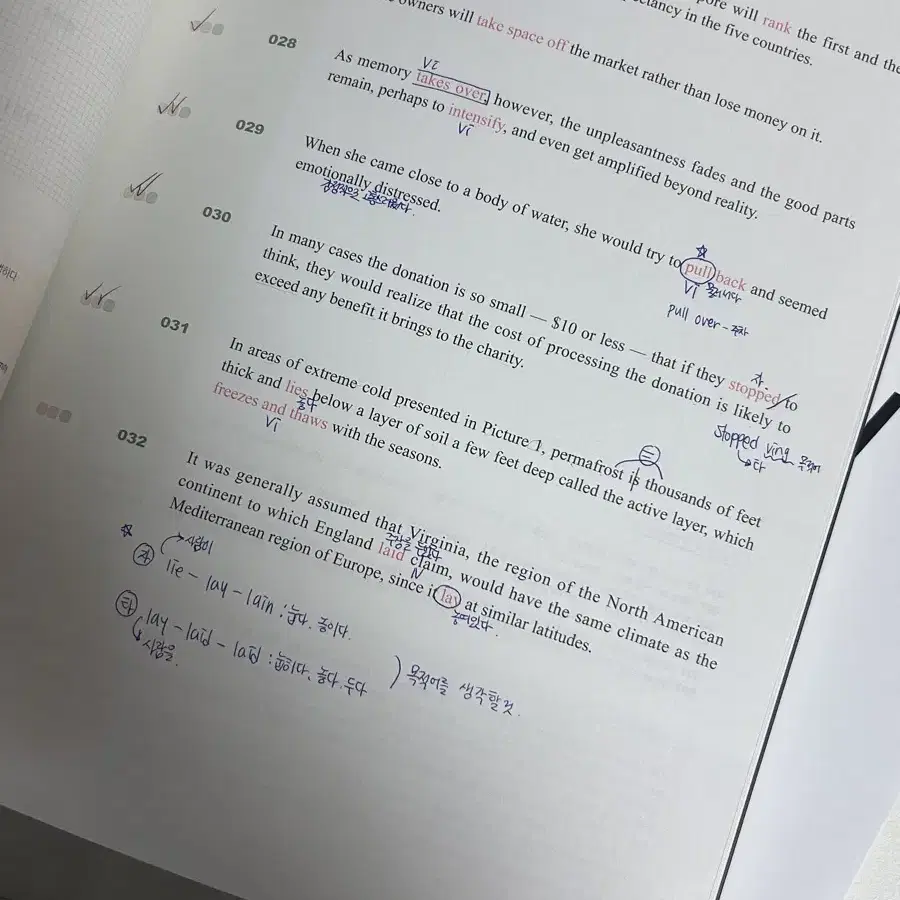 pore will rank the first and the
ctancy in the five countries.
owners will take space off the market rather than lose money on it.
028
Vi
As memory takes over, however, the unpleasantness fades and the good parts
remain, perhaps to intensify, and even get amplified beyond reality.
Vi
029
When she came close to a body of water, she would try to pull back and seemed
emotionally distressed.
감정적으로 고통스러웠다.
Vi 물러나다
pull over - 주차
030
In many cases the donation is so small — $10 or less — that if they stopped to
자.
think, they would realize that the cost of processing the donation is likely to
exceed any benefit it brings to the charity.
stopped ving 목적어
타
031
In areas of extreme cold presented in Picture 1, permafrost is thousands of feet
thick and lies below a layer of soil a few feet deep called the active layer, which
놓다
freezes and thaws with the seasons.
Vi
032
It was generally assumed that Virginia, the region of the North American
continent to which England laid claim, would have the same climate as the
Mediterranean region of Europe, since it lay at similar latitudes.
놓여있다.
사람이
자 lie - lay - lain : 눕다. 놓이다.
타 lay - laid - laid : 눕히다, 놓다. 두다
사람을.
목적어를 생각할것.